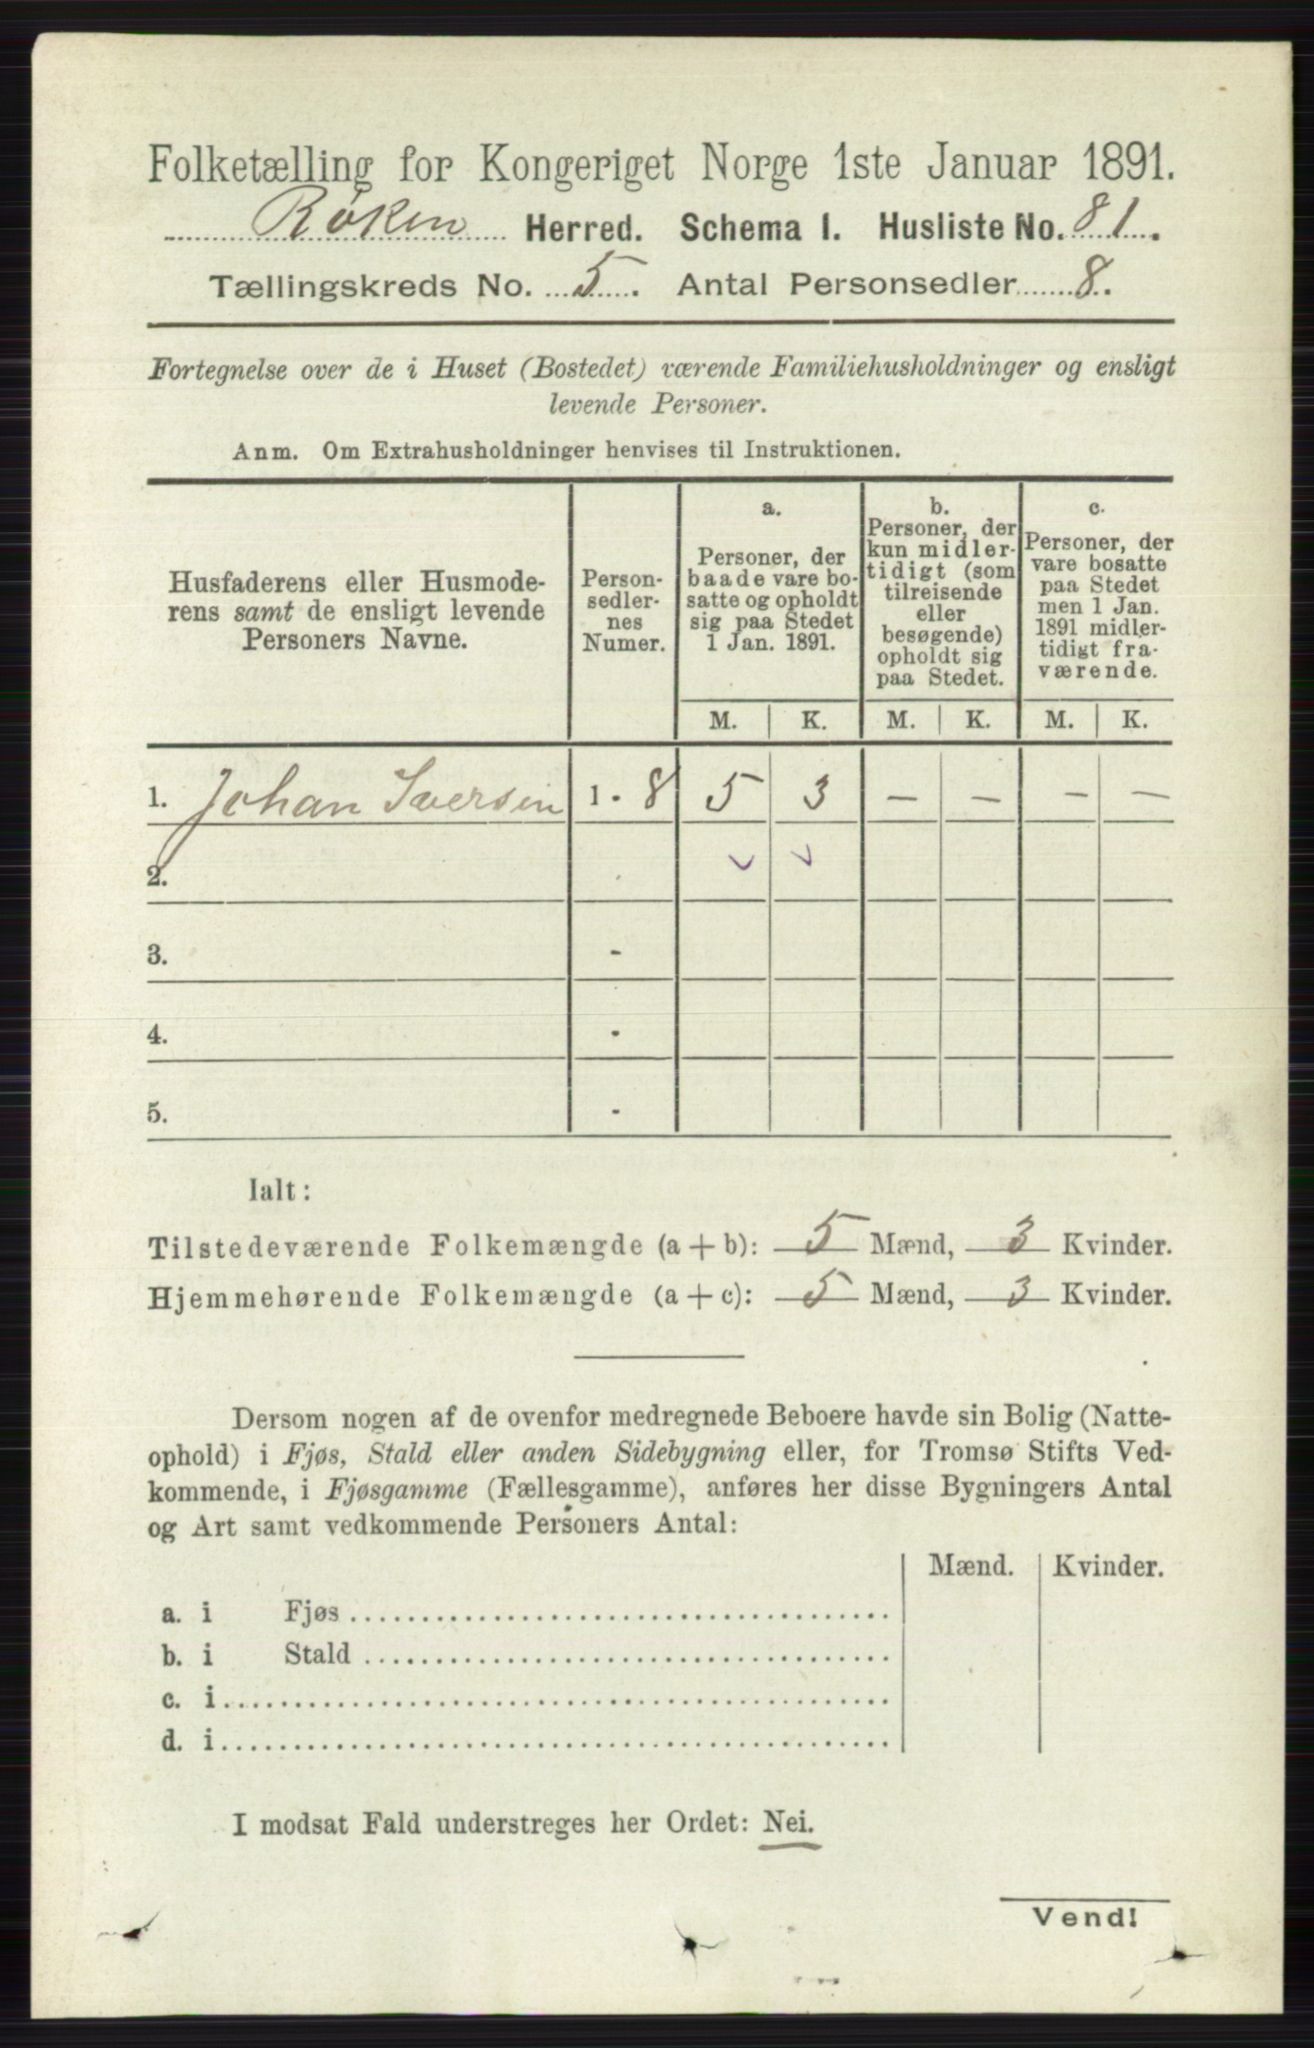 Folketælling for Kongeriget Norge 1ste Januar 1891.
Røken Herred. Schema I. Husliste No. 81.
Tællingskreds No. 5. Antal Personsedler 8.
Fortegnelse over de i Huset (Bostedet) værende Familiehusholdninger og ensligt
levende Personer.
Anm. Om Extrahusholdninger henvises til Instruktionen.
Husfaderens eller Husmode-
rens samt de ensligt levende
Personers Navne.
Person-
sedler-
nes
Numer.
a.
Personer, der
baade vare bo-
satte og opholdt
sig paa Stedet
1 Jan. 1891.
b.
Personer, der
kun midler-
tidigt (som
tilreisende
eller
besøgende)
opholdt sig
paa Stedet.
c.
Personer, der
vare bosatte
paa Stedet
men 1 Jan.
1891 midler-
tidigt fra-
værende.
M. K. M. K. M. K.
1. Johan Iversen 1 - 8 5 3 — — — —
2.
3. -
4. -
5. -
Ialt:
Tilstedeværende Folkemængde (a + b): 5 Mænd, 3 Kvinder.
Hjemmehørende Folkemængde (a + c): 5 Mænd, 3 Kvinder.
Dersom nogen af de ovenfor medregnede Beboere havde sin Bolig (Natte-
ophold) i Fjøs, Stald eller anden Sidebygning eller, for Tromsø Stifts Ved-
kommende, i Fjøsgamme (Fællesgamme), anføres her disse Bygningers Antal
og Art samt vedkommende Personers Antal:
Mænd. Kvinder.
a. i Fjøs
b. i Stald
c. i
d. i
I modsat Fald understreges her Ordet: Nei.
Vend!